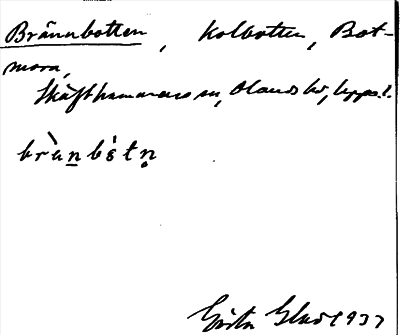 Brännbotten, Kolbotten, Bot-
mora,
Skäfthammars sn, Olands hd, Uppl.
brànbòtn
Gösta Glad 1937